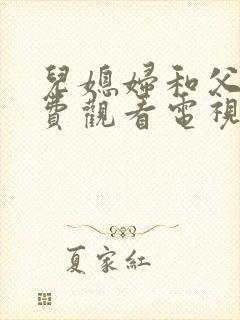 兒媳婦和父
費觀看電視
夏家紅